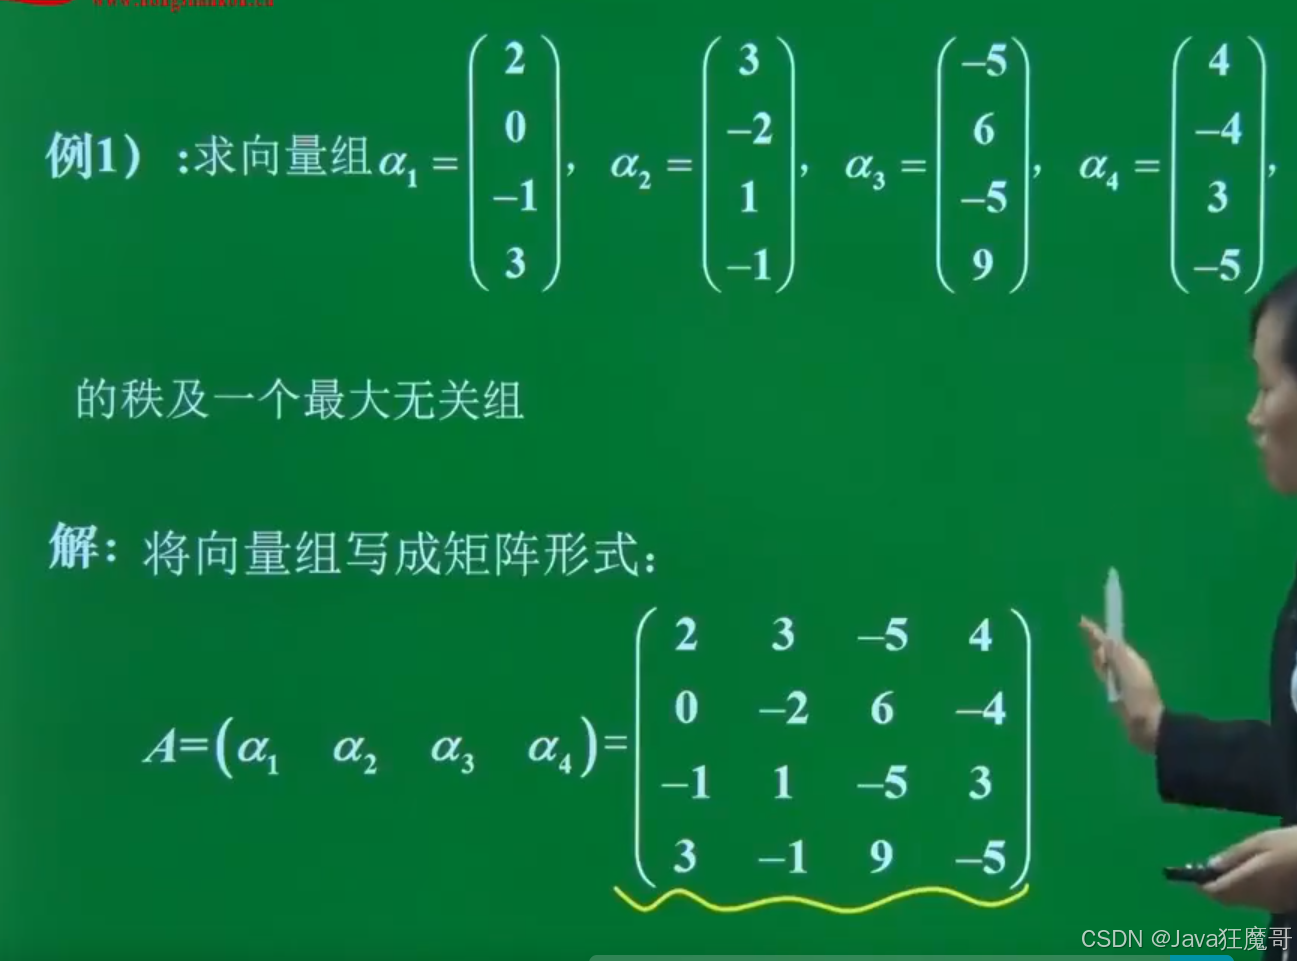 例1）:求向量组α₁ = (2 0 −1 3), α₂ = (3 −2 1 −1), α₃ = (−5 6 −5 9), α₄ = (4 −4 3 −5),
的秩及一个最大无关组
解：将向量组写成矩阵形式：
A=(α₁ α₂ α₃ α₄)=
2 3 −5 4
0 −2 6 −4
−1 1 −5 3
3 −1 9 −5
CSDN @Java狂魔哥